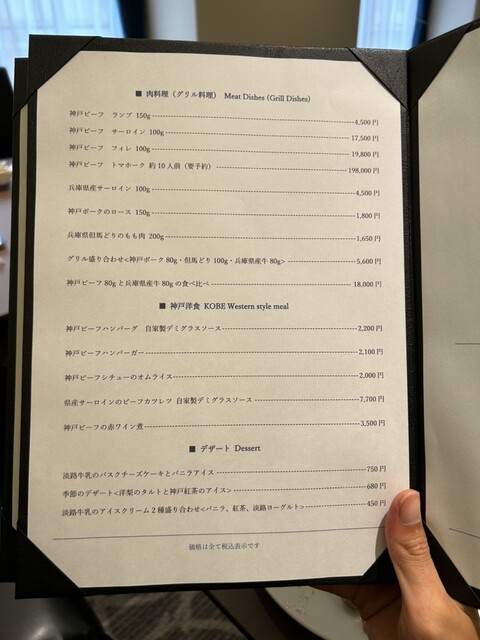 ■ 肉料理（グリル料理） Meat Dishes (Grill Dishes)
神戸ビーフ ランプ 150g ---------- 4,500 円
神戸ビーフ サーロイン 100g ---------- 17,500 円
神戸ビーフ フィレ 100g ---------- 19,800 円
神戸ビーフ トマホーク 約10人前（要予約） ---------- 198,000 円
兵庫県産サーロイン 100g ---------- 4,500 円
神戸ポークのロース 150g ---------- 1,800 円
兵庫県但馬どりのもも肉 200g ---------- 1,650 円
グリル盛り合わせ<神戸ポーク 80g・但馬どり 100g・兵庫県産牛 80g> ---------- 5,600 円
神戸ビーフ 80g と兵庫県産牛 80g の食べ比べ ---------- 18,000 円
■ 神戸洋食 KOBE Western style meal
神戸ビーフハンバーグ 自家製デミグラスソース ---------- 2,200 円
神戸ビーフハンバーガー ---------- 2,100 円
神戸ビーフシチューのオムライス ---------- 2,000 円
県産サーロインのビーフカツレツ 自家製デミグラスソース ---------- 7,700 円
神戸ビーフの赤ワイン煮 ---------- 3,500 円
■ デザート Dessert
淡路牛乳のバスクチーズケーキとバニラアイス ---------- 750 円
季節のデザート<洋梨のタルトと神戸紅茶のアイス> ---------- 680 円
淡路牛乳のアイスクリーム 2 種盛り合わせ<バニラ、紅茶、淡路ヨーグルト> ---------- 450 円
価格は全て税込表示です